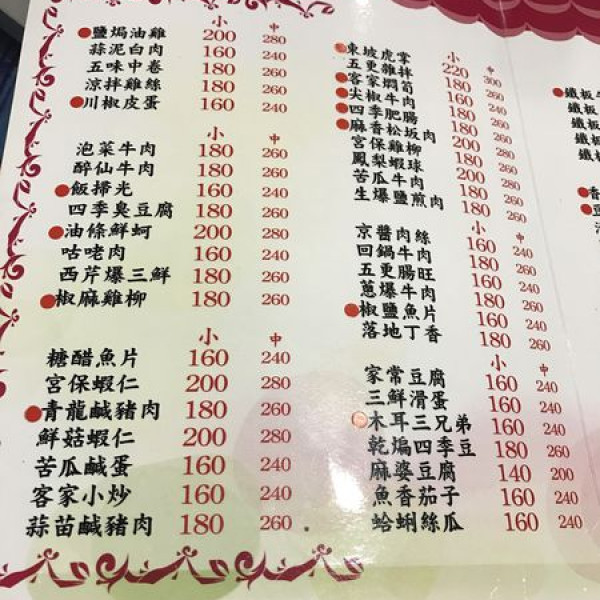 小 中
鹽焗油雞 200 280
蒜泥白肉 160 240
五味中卷 180 260
涼拌雞絲 180 260
川椒皮蛋 160 240
小 中
泡菜牛肉 180 260
醉仙牛肉 180 260
飯掃光 160 240
四季臭豆腐 180 260
油條鮮蚵 200 280
咕咾肉 160 240
西芹爆三鮮 180 260
椒麻雞柳 180 260
小 中
糖醋魚片 160 240
宮保蝦仁 200 280
青龍鹹豬肉 180 260
鮮菇蝦仁 200 280
苦瓜鹹蛋 160 240
客家小炒 160 240
蒜苗鹹豬肉 180 260
小 中
東坡虎掌 220 300
五更雜拌 180 260
客家燜筍 160 240
尖椒牛肉 180 260
四季肥腸 180 260
麻香松坂肉 200 280
宮保雞柳 180 260
鳳梨蝦球 200 280
苦瓜牛肉 180 260
生爆鹽煎肉 180 260
小 中
京醬肉絲 160 240
回鍋牛肉 180 260
五更腸旺 180 260
蔥爆牛肉 180 260
椒鹽魚片 160 240
落地丁香 180 260
小 中
家常豆腐 160 240
三鮮滑蛋 160 240
木耳三兄弟 160 240
乾煸四季豆 180 260
麻婆豆腐 140 200
魚香茄子 160 240
蛤蜊絲瓜 160 240
鐵板
鐵板
鐵板
鐵板